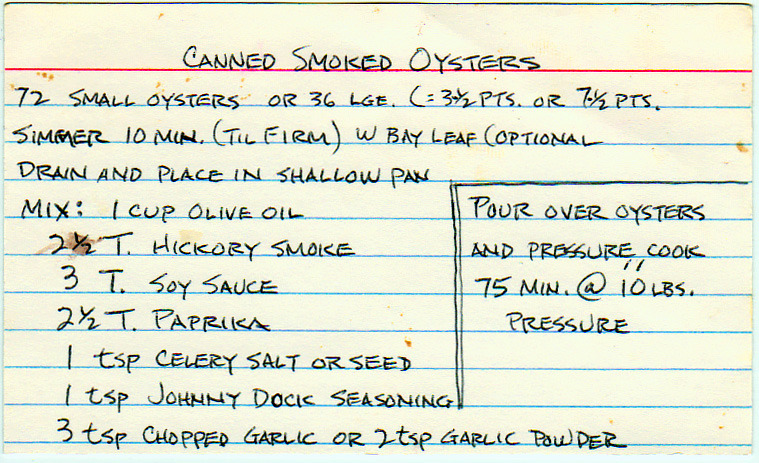 CANNED SMOKED OYSTERS
72 SMALL OYSTERS OR 36 LGE. (= 3-½ PTS. OR 7-½ PTS.
SIMMER 10 MIN. (TIL FIRM) W BAY LEAF (OPTIONAL
DRAIN AND PLACE IN SHALLOW PAN
MIX: 1 CUP OLIVE OIL
2½ T. HICKORY SMOKE
3 T. SOY SAUCE
2½ T. PAPRIKA
1 tsp CELERY SALT OR SEED
1 tsp JOHNNY DOCK SEASONING
3 tsp CHOPPED GARLIC OR 2 tsp GARLIC POWDER
POUR OVER OYSTERS
AND PRESSURE COOK
75 MIN. @ 10 LBS.
PRESSURE